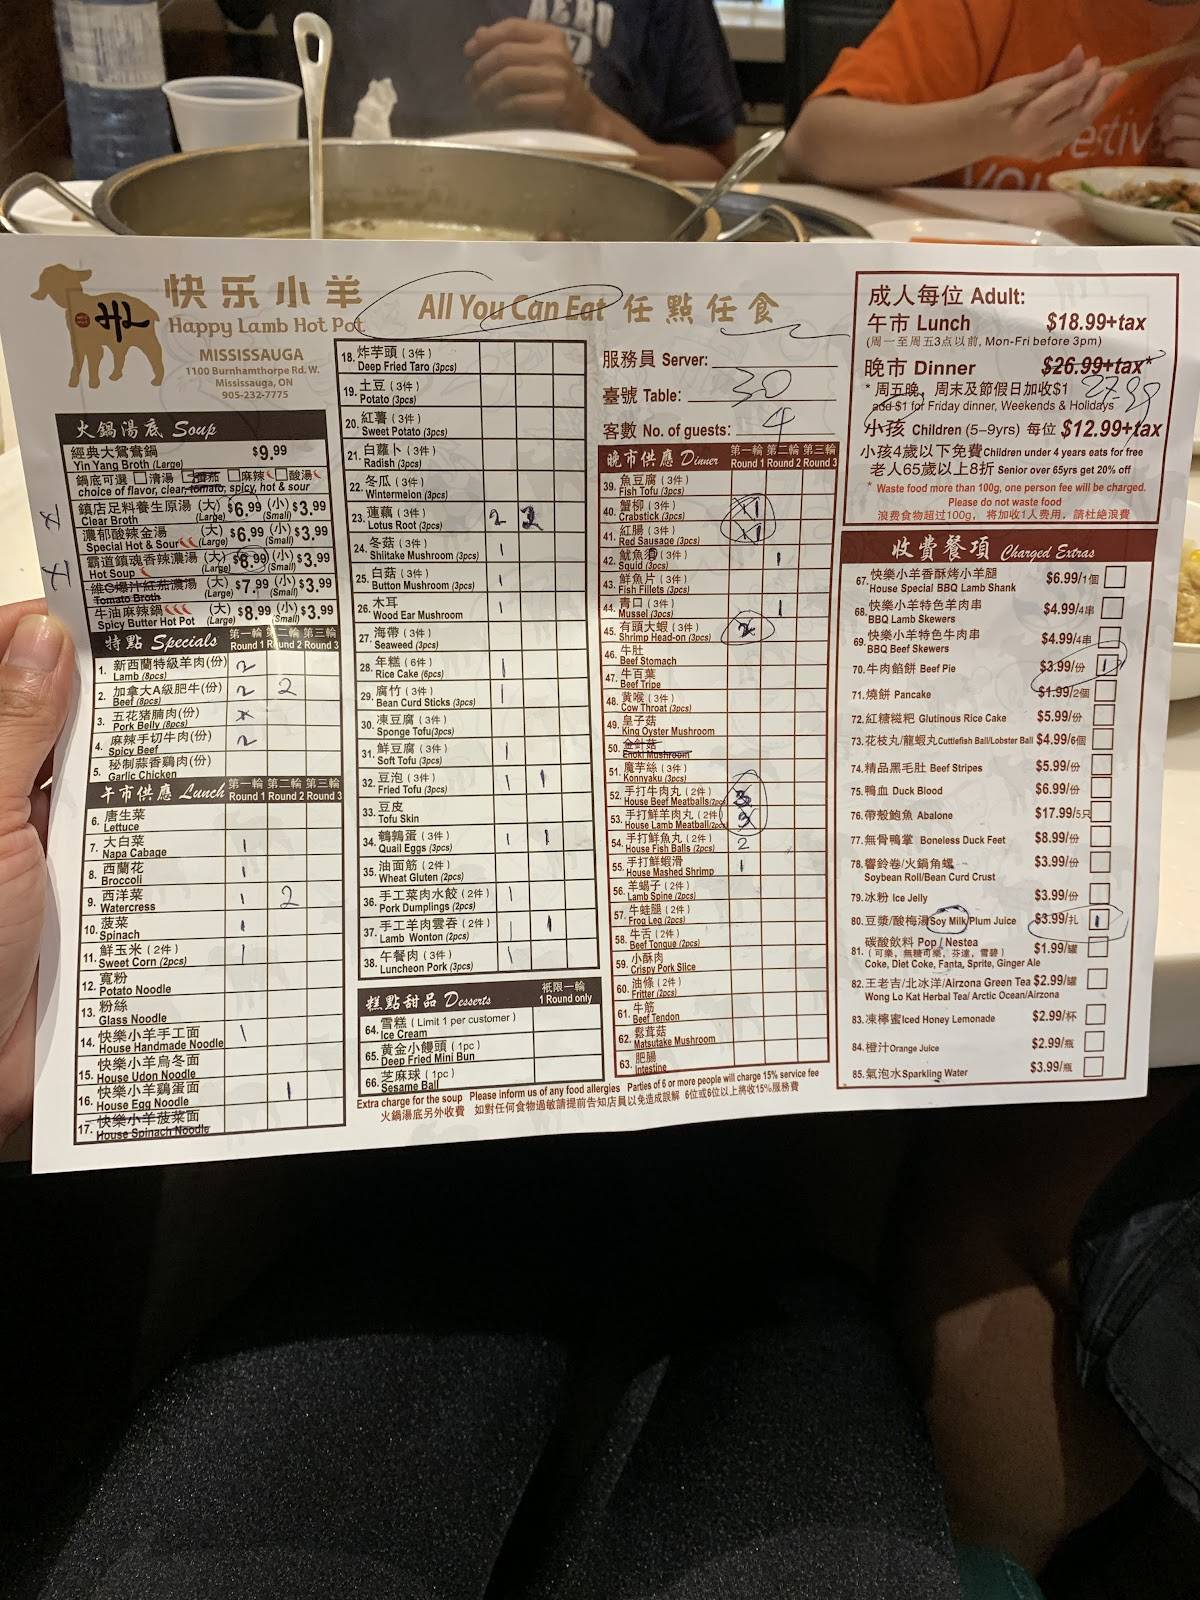 AERO
7
festiv
YOU
快乐小羊
Happy Lamb Hot Pot
MISSISSAUGA
1100 Burnhamthorpe Rd. W.
Mississauga, ON
905-232-7775
All You Can Eat 任點任食
服務員 Server:
臺號 Table: 30
客數 No. of guests: 4
成人每位 Adult:
午市 Lunch $18.99+tax
(周一至周五3点以前, Mon-Fri before 3pm)
晚市 Dinner $26.99+tax* 27.99
* 周五晚，周末及節假日加收$1
add $1 for Friday dinner, Weekends & Holidays
小孩 Children (5–9yrs) 每位 $12.99+tax
小孩4歲以下免費 Children under 4 years eats for free
老人65歲以上8折 Senior over 65yrs get 20% off
* Waste food more than 100g, one person fee will be charged.
Please do not waste food
浪费食物超过100g， 将加收1人费用，請杜絶浪費
火鍋湯底 Soup
經典大鴛鴦鍋 $9.99
Yin Yang Broth (Large)
鍋底可選 清湯 麻辣 酸湯
choice of flavor, clear, tomato, spicy, hot & sour
鎮店足料養生原湯 (大) $6.99 (小) $3.99
Clear Broth (Large) (Small)
濃郁酸辣金湯 (大) $6.99 (小) $3.99
Special Hot & Sour (Large) (Small)
霸道鎮魂香辣濃湯 (大) $6.99 (小) $3.99
Hot Soup (Large) (Small)
維C爆汁紅茄濃湯 (大) $7.99 (小) $3.99
Tomato Broth (Large) (Small)
牛油麻辣鍋 (大) $8.99 (小) $3.99
Spicy Butter Hot Pot (Large) (Small)
特點 Specials 第一輪 第二輪 第三輪
Round 1 Round 2 Round 3
1. 新西蘭特級羊肉(份) 2
Lamb (8pcs)
2. 加拿大A級肥牛(份) 2 2
Beef (8pcs)
3. 五花猪腩肉(份)
Pork Belly (8pcs)
4. 麻辣手切牛肉(份) 2
Spicy Beef
5. 秘制蒜香鷄肉(份)
Garlic Chicken
午市供應 Lunch 第一輪 第二輪 第三輪
Round 1 Round 2 Round 3
6. 唐生菜
Lettuce
7. 大白菜 1
Napa Cabage
8. 西蘭花 1
Broccoli
9. 西洋菜 1 2
Watercress
10. 菠菜 1
Spinach
11. 鮮玉米 (2件) 1
Sweet Corn (2pcs)
12. 寬粉
Potato Noodle
13. 粉絲
Glass Noodle
14. 快樂小羊手工面 1
House Handmade Noodle
15. 快樂小羊烏冬面
House Udon Noodle
16. 快樂小羊鷄蛋面 1
House Egg Noodle
17. 快樂小羊菠菜面
House Spinach Noodle
18. 炸芋頭 (3件)
Deep Fried Taro (3pcs)
19. 土豆 (3件)
Potato (3pcs)
20. 紅薯 (3件)
Sweet Potato (3pcs)
21. 白蘿卜 (3件)
Radish (3pcs)
22. 冬瓜 (3件)
Wintermelon (3pcs)
23. 蓮藕 (3件) 2 2
Lotus Root (3pcs)
24. 冬菇 (3件) 1
Shiitake Mushroom (3pcs)
25. 白菇 (3件) 1
Button Mushroom (3pcs)
26. 木耳 1
Wood Ear Mushroom
27. 海帶 (3件)
Seaweed (3pcs)
28. 年糕 (6件) 1
Rice Cake (6pcs)
29. 腐竹 (3件) 1
Bean Curd Sticks (3pcs)
30. 凍豆腐 (3件)
Sponge Tofu(3pcs)
31. 鮮豆腐 (3件) 1
Soft Tofu (3pcs)
32. 豆泡 (3件) 1 1
Fried Tofu (3pcs)
33. 豆皮
Tofu Skin
34. 鵪鶉蛋 (3件) 1 1
Quail Eggs (3pcs)
35. 油面筋 (2件)
Wheat Gluten (2pcs)
36. 手工菜肉水餃 (2件) 1
Pork Dumplings (2pcs)
37. 手工羊肉雲吞 (2件) 1 1
Lamb Wonton (2pcs)
38. 午餐肉 (3件) 1
Luncheon Pork (3pcs)
糕點甜品 Desserts 衹限一輪
1 Round only
64. 雪糕 (Limit 1 per customer)
Ice Cream
65. 黄金小饅頭 (1pc)
Deep Fried Mini Bun
66. 芝麻球 (1pc)
Sesame Ball
晚市供應 Dinner 第一輪 第二輪 第三輪
Round 1 Round 2 Round 3
39. 魚豆腐 (3件)
Fish Tofu (3pcs)
40. 蟹柳 (3件)
Crabstick (3pcs)
41. 紅腸 (3件)
Red Sausage (3pcs)
42. 魷魚須 (3件) 1
Squid (3pcs)
43. 鮮魚片 (3件)
Fish Fillets (3pcs)
44. 青口 (3件) 1
Mussel (3pcs)
45. 有頭大蝦 (3件)
Shrimp Head-on (3pcs)
46. 牛肚
Beef Stomach
47. 牛百葉
Beef Tripe
48. 黄喉 (3件)
Cow Throat (3pcs)
49. 皇子菇
King Oyster Mushroom
50. 金針菇
Enoki Mushroom
51. 魔芋絲 (3件)
Konnyaku (3pcs)
52. 手打牛肉丸 (2件) 3
House Beef Meatballs(2pcs)
53. 手打鮮羊肉丸 (2件) 3
House Lamb Meatball(2pcs)
54. 手打鮮魚丸 (2件) 2
House Fish Balls (2pcs)
55. 手打鮮蝦滑 1
House Mashed Shrimp
56. 羊蝎子 (2件)
Lamb Spine (2pcs)
57. 牛蛙腿 (2件)
Frog Leg (2pcs)
58. 牛舌 (2件)
Beef Tongue (2pcs)
59. 小酥肉
Crispy Pork Slice
60. 油條 (2件)
Fritter (2pcs)
61. 牛筋
Beef Tendon
62. 鬆茸菇
Matsutake Mushroom
63. 肥腸
Intestine
收費餐項 Charged Extras
67. 快樂小羊香酥烤小羊腿 $6.99/1個
House Special BBQ Lamb Shank
68. 快樂小羊特色羊肉串 $4.99/4串
BBQ Lamb Skewers
69. 快樂小羊特色牛肉串 $4.99/4串
BBQ Beef Skewers
70. 牛肉餡餅 Beef Pie $3.99/份 1
71. 燒餅 Pancake $1.99/2個
72. 紅糖糍粑 Glutinous Rice Cake $5.99/份
73. 花枝丸/龍蝦丸 Cuttlefish Ball/Lobster Ball $4.99/6個
74. 精品黑毛肚 Beef Stripes $5.99/份
75. 鴨血 Duck Blood $6.99/份
76. 帶殼鮑魚 Abalone $17.99/5只
77. 無骨鴨掌 Boneless Duck Feet $8.99/份
78. 響鈴卷/火鍋角螺 $3.99/份
Soybean Roll/Bean Curd Crust
79. 冰粉 Ice Jelly $3.99/份
80. 豆漿/酸梅湯 Soy Milk/Plum Juice $3.99/扎 1
81. 碳酸飲料 Pop / Nestea $1.99/罐
(可樂，無糖可樂，芬達，雪碧)
Coke, Diet Coke, Fanta, Sprite, Ginger Ale
82. 王老吉/北冰洋/Airzona Green Tea $2.99/罐
Wong Lo Kat Herbal Tea/ Arctic Ocean/Airzona
83. 凍檸蜜 Iced Honey Lemonade $2.99/杯
84. 橙汁 Orange Juice $2.99/瓶
85. 氣泡水 Sparkling Water $3.99/瓶
Extra charge for the soup Please inform us of any food allergies Parties of 6 or more people will charge 15% service fee
火鍋湯底另外收費 如對任何食物過敏請提前告知店員以免造成誤解 6位或6位以上將收15%服務費